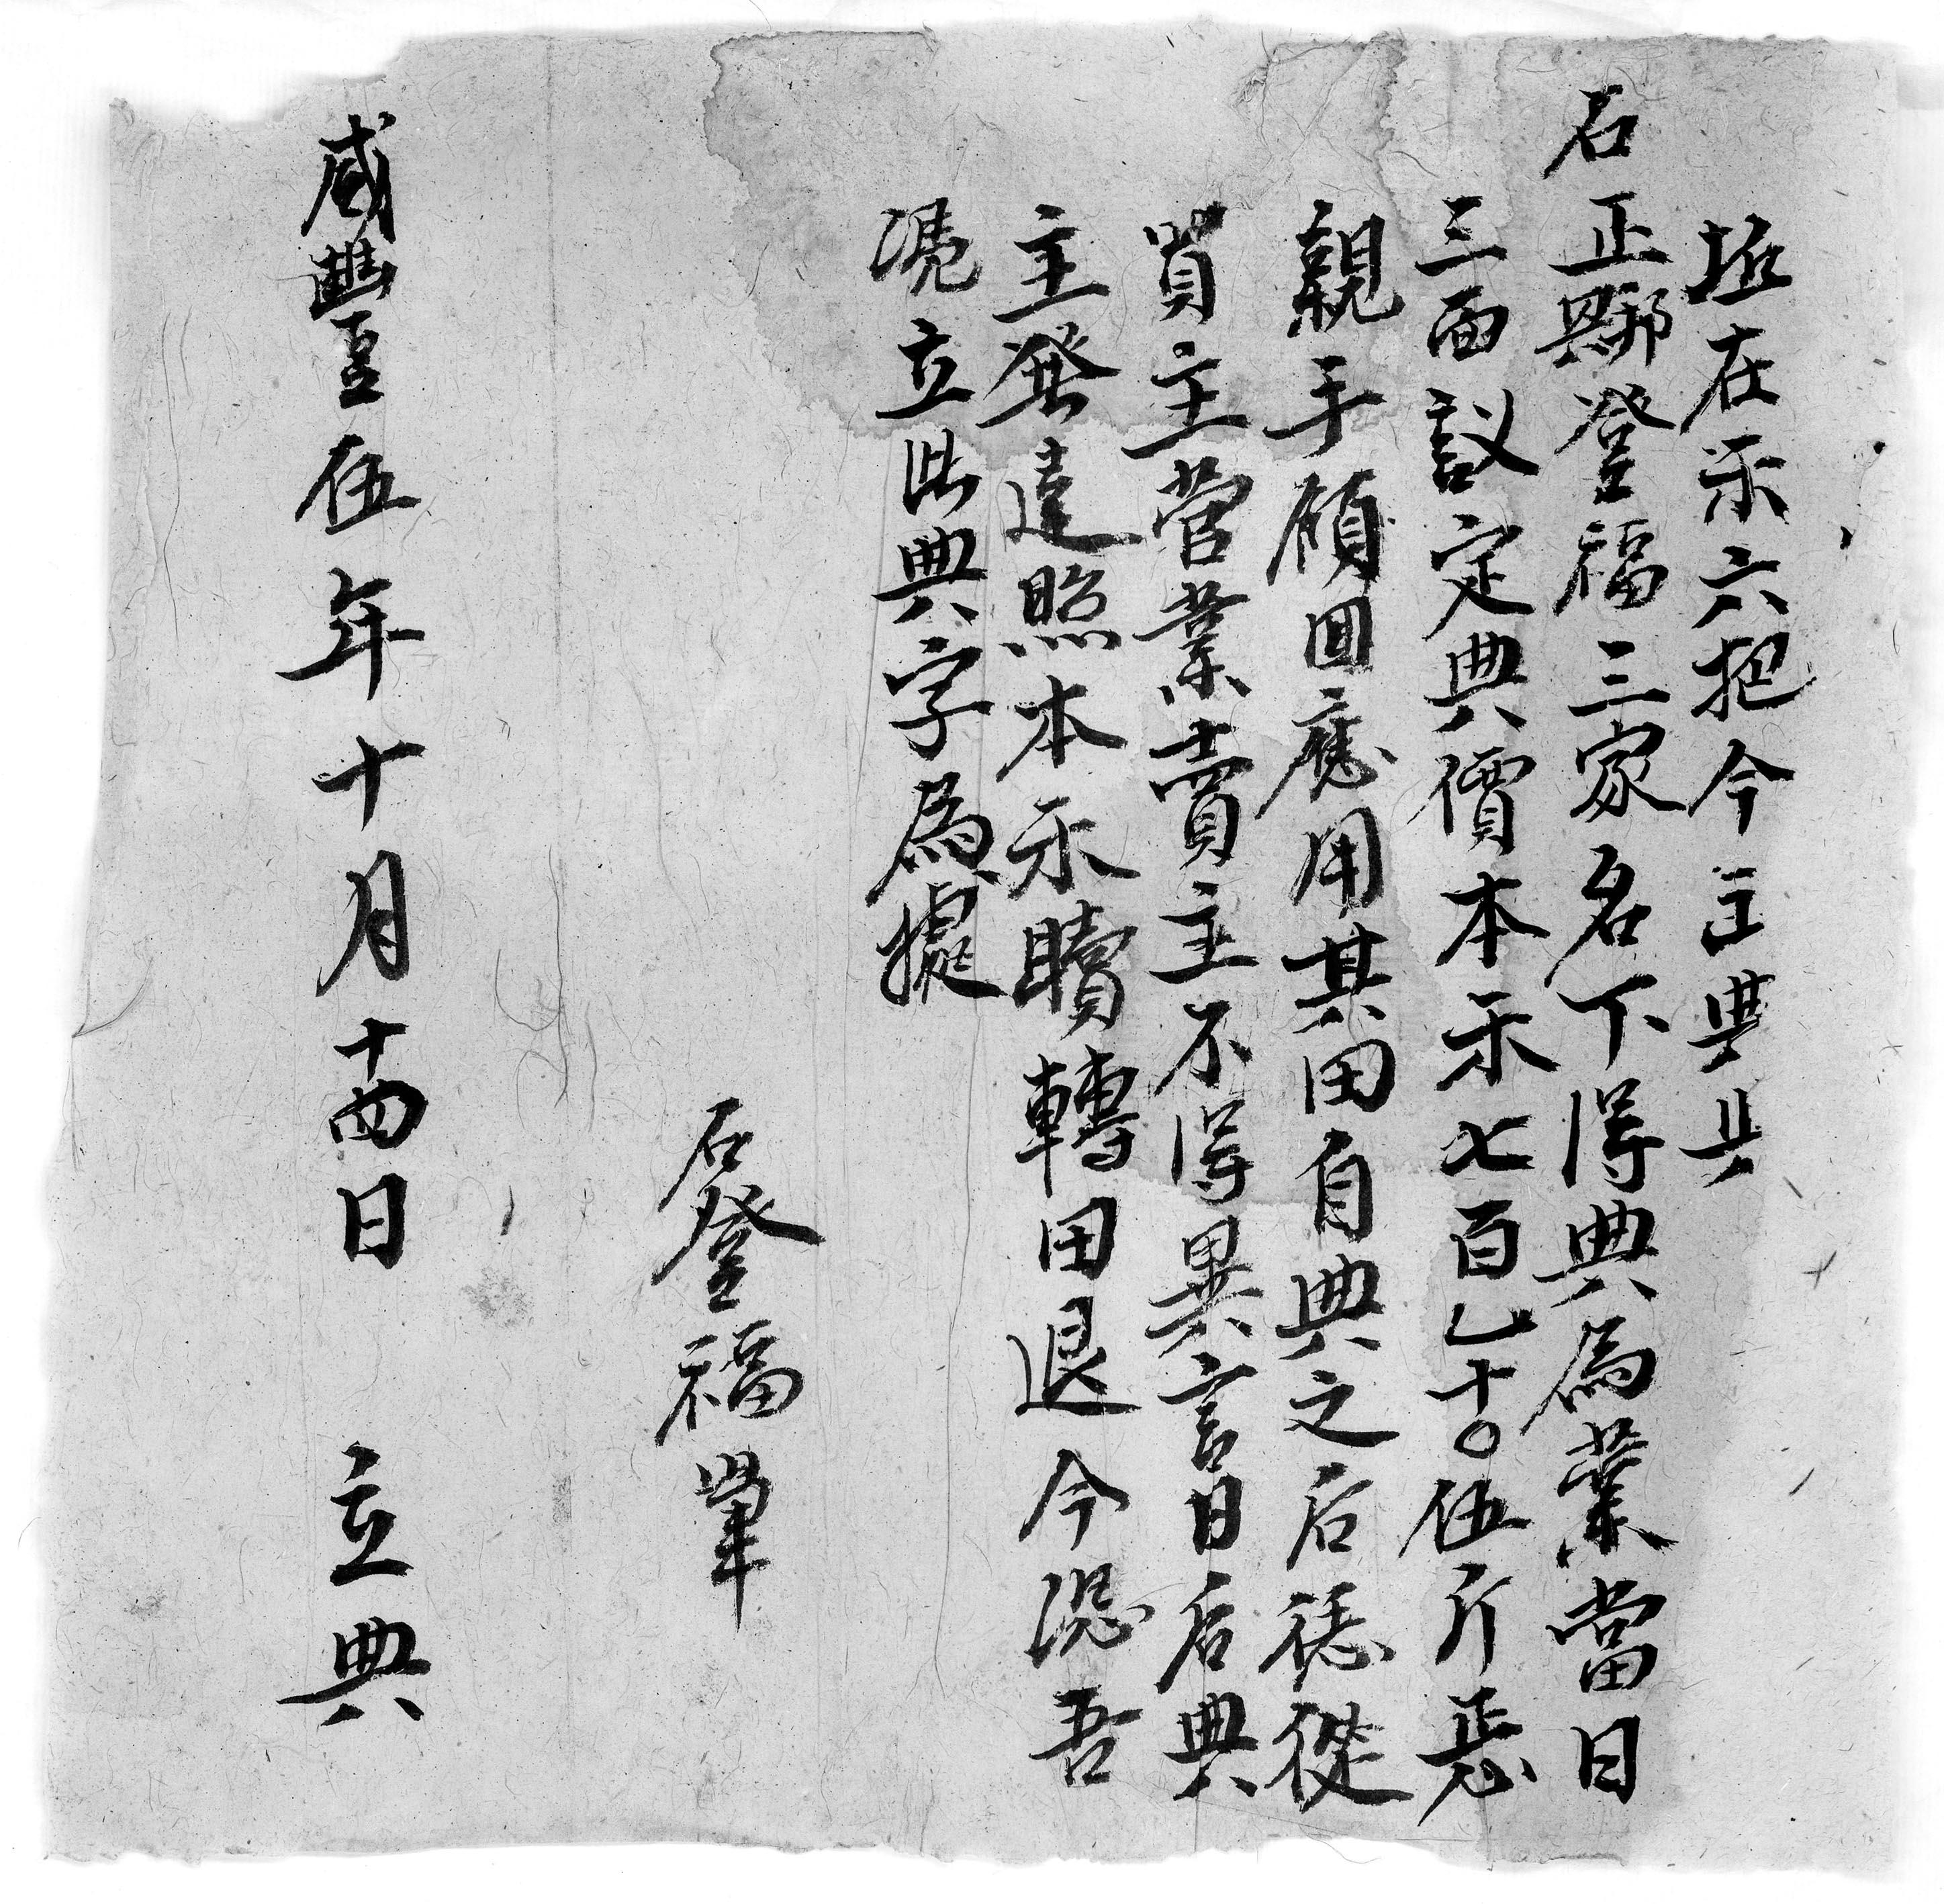 坵在禾六把今立典與
石正卿登福三家名下得典為業當日
三面議定典價本禾七百乚十〇伍斤悪
親手領回應用其田自典之后穏從
買主营業賣主不得異言日后典
主發達照本禾贖轉田退今恐吾
凴立此典字為據
石登福筆
咸豐伍年十月十四日 立典